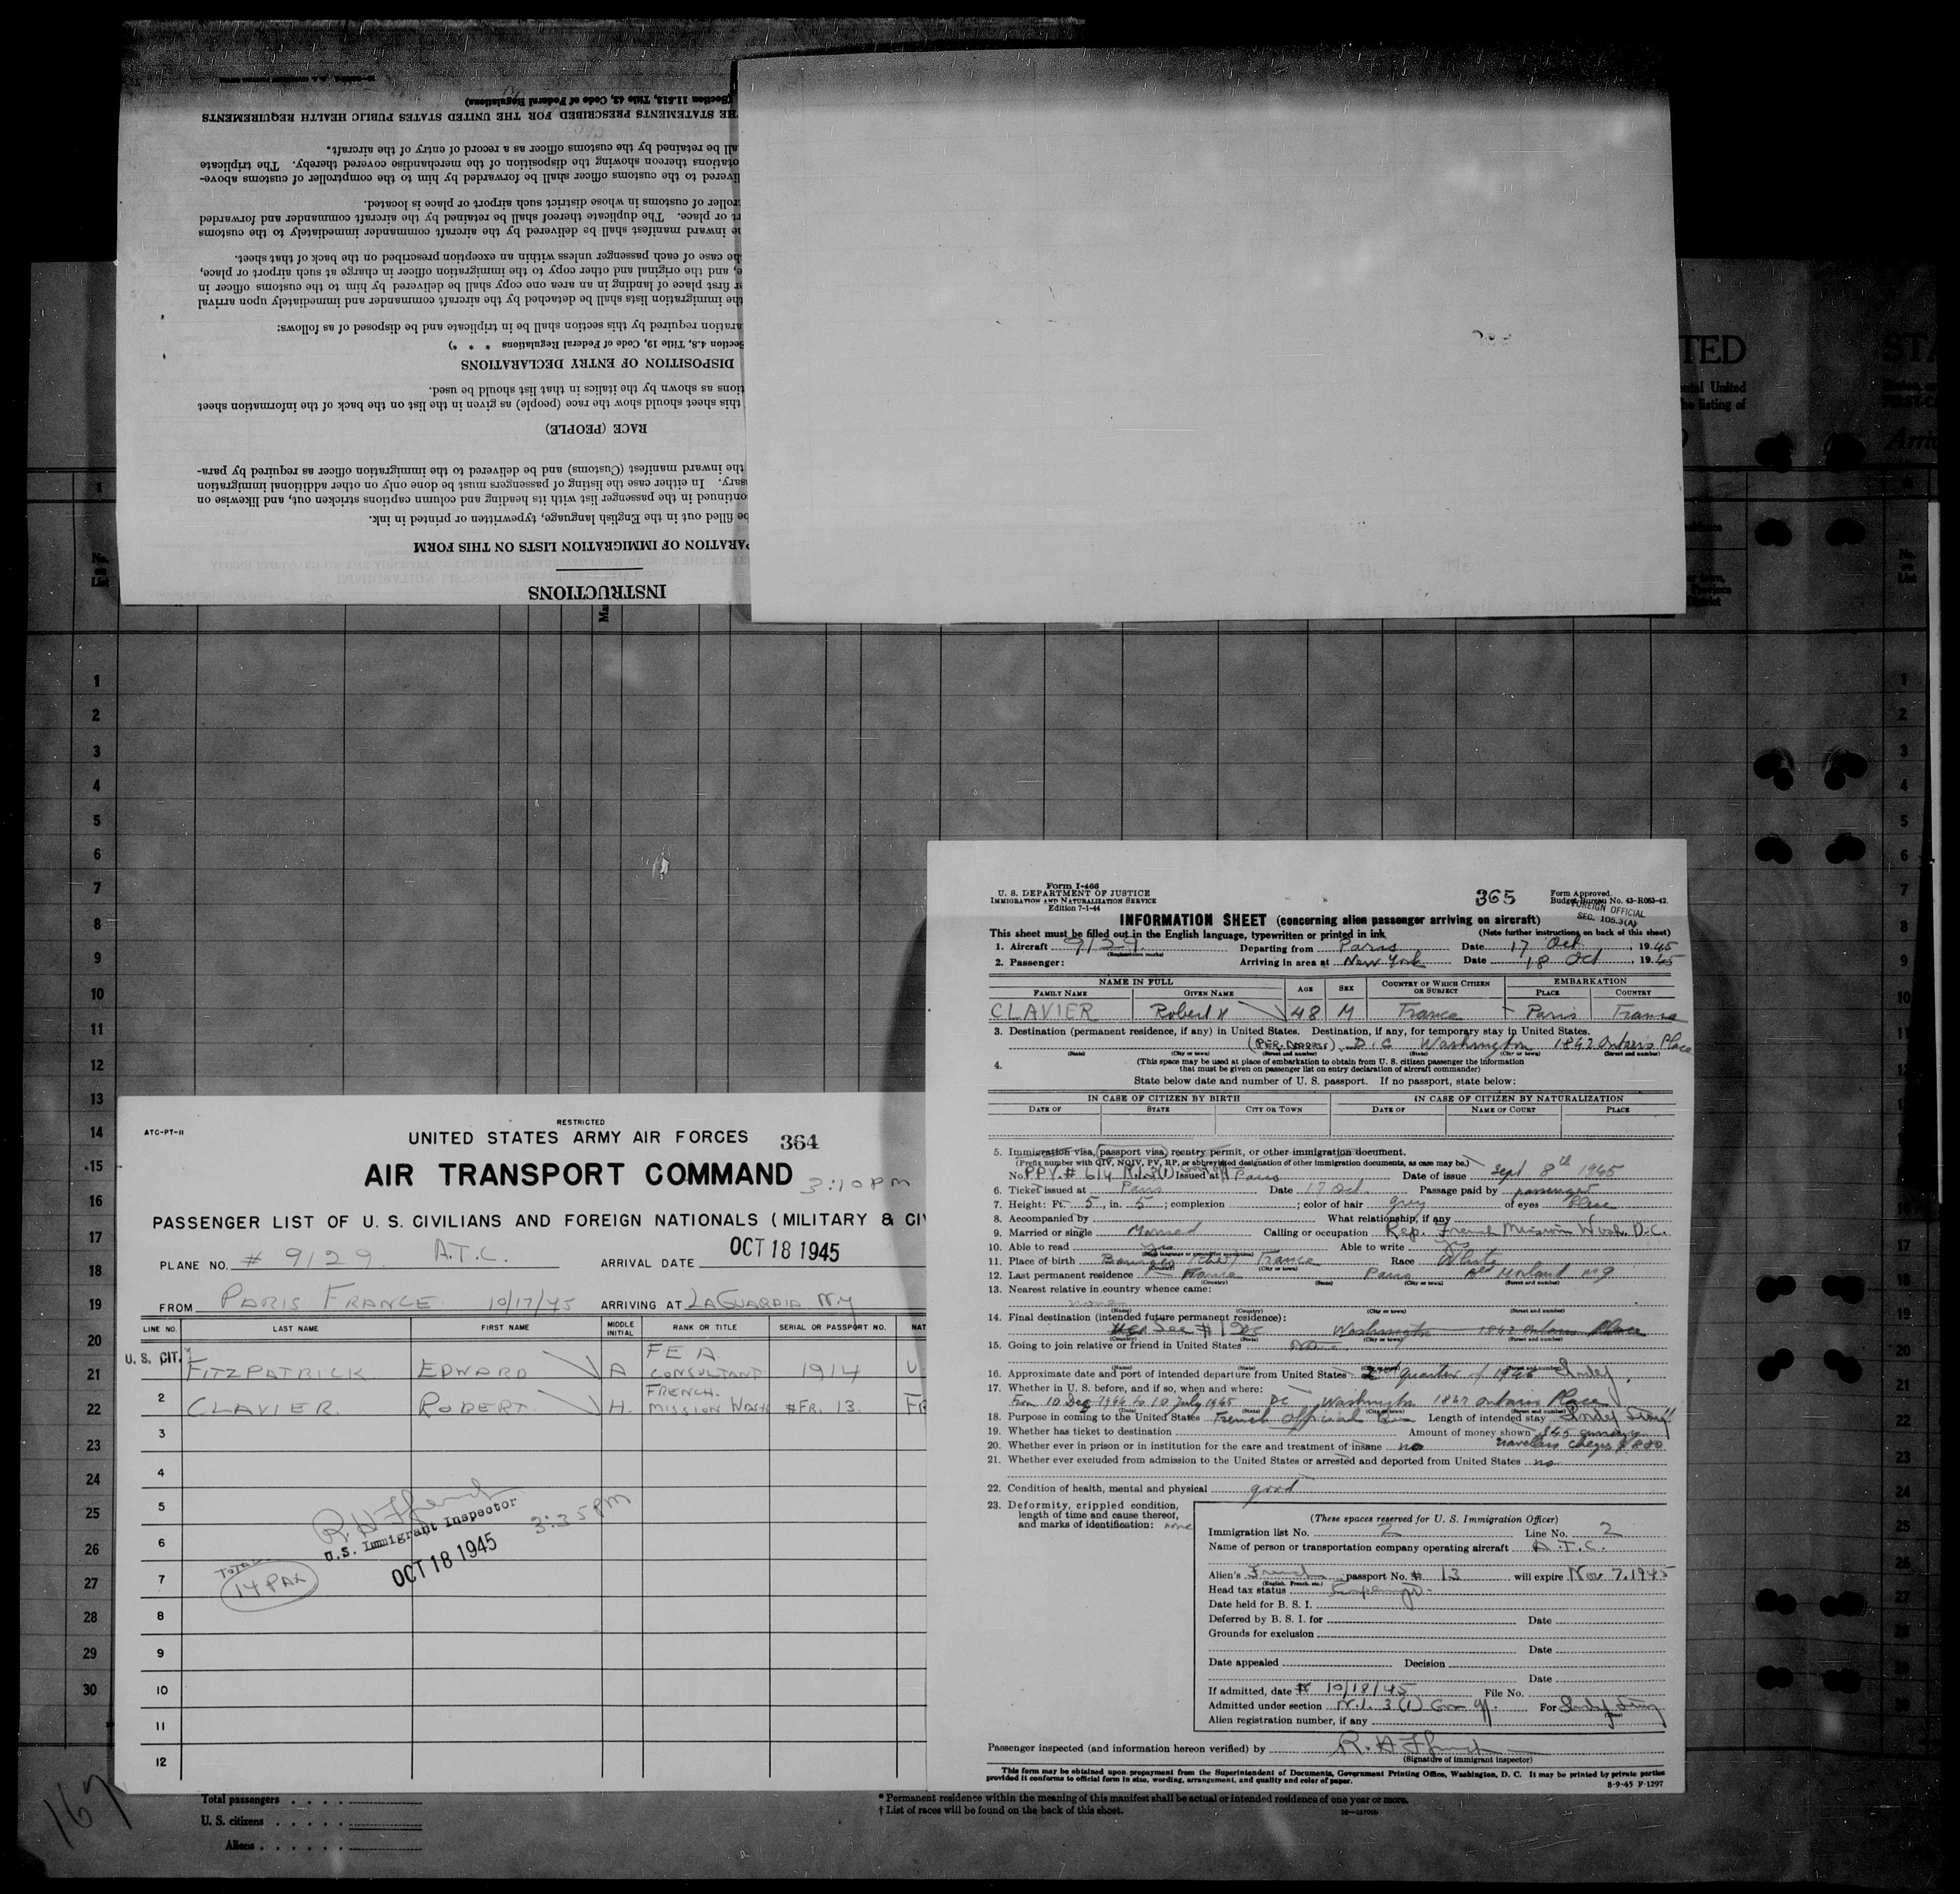 (Section 11.512, Title 42, Code of Federal Regulations)
THE STATEMENTS PRESCRIBED FOR THE UNITED STATES PUBLIC HEALTH REQUIREMENTS
all be retained by the customs officer as a record of entry of the aircraft.
otations thereon showing the disposition of the merchandise covered thereby. The triplicate
livered to the customs officer shall be forwarded by him to the comptroller of customs above-
roller of customs in whose district such airport or place is located.
rt or place. The duplicate thereof shall be retained by the aircraft commander and forwarded
he inward manifest shall be delivered by the aircraft commander immediately to the customs
he case of each passenger unless within an exception prescribed on the back of that sheet.
e, and the original and other copy to the immigration officer in charge at such airport or place,
r first place of landing in an area one copy shall be delivered by him to the customs officer in
the immigration lists shall be detached by the aircraft commander and immediately upon arrival
aration required by this section shall be in triplicate and be disposed of as follows:
Section 4.8, Title 19, Code of Federal Regulations * * *)
DISPOSITION OF ENTRY DECLARATIONS
tions as shown by the italics in that list should be used.
this sheet should show the race (people) as given in the list on the back of the information sheet
RACE (PEOPLE)
the inward manifest (Customs) and be delivered to the immigration officer as required by para-
ssary. In either case the listing of passengers must be done only on other additional immigration
ontinued in the passenger list with its heading and column captions stricken out, and likewise on
be filled out in the English language, typewritten or printed in ink.
PARATION OF IMMIGRATION LISTS ON THIS FORM
INSTRUCTIONS
TED
ntal United
he listing of
STA
Arri
No. on List
1
2
3
4
5
6
7
8
9
10
11
12
13
14
15
16
17
18
19
20
21
22
23
24
25
26
27
28
29
30
ATC-PT-11
RESTRICTED
UNITED STATES ARMY AIR FORCES 364
AIR TRANSPORT COMMAND 3:10 PM
PASSENGER LIST OF U. S. CIVILIANS AND FOREIGN NATIONALS (MILITARY & CIV
PLANE NO. # 9129 A.T.C. ARRIVAL DATE OCT 18 1945
FROM PARIS FRANCE 10/17/45 ARRIVING AT LAGUARDIA N.Y
LINE NO. LAST NAME FIRST NAME MIDDLE INITIAL RANK OR TITLE SERIAL OR PASSPORT NO. NAT
U.S. CIT. FITZPATRICK EDWARD A FEA CONSULTANT 1914 U
2 CLAVIER ROBERT H. FRENCH MISSION WASH #FR. 13 FR
3
4
5
6
7
8
9
10
11
12
R.H.Ffrench
U.S. Immigrant Inspector
OCT 18 1945
3:35 PM
TOTAL
14 PAX
Form I-466
U. S. DEPARTMENT OF JUSTICE
IMMIGRATION AND NATURALIZATION SERVICE
Edition 7-1-44
365
Form Approved.
Budget Bureau No. 43-R063-42.
FOREIGN OFFICIAL
SEC. 105.3(A)
INFORMATION SHEET (concerning alien passenger arriving on aircraft)
This sheet must be filled out in the English language, typewritten or printed in ink (Note further instructions on back of this sheet)
1. Aircraft 9129 (Registration marks) Departing from Paris Date 17 Oct, 1945
2. Passenger: Arriving in area at New York Date 18 Oct, 1945
NAME IN FULL AGE SEX COUNTRY OF WHICH CITIZEN OR SUBJECT EMBARKATION
FAMILY NAME GIVEN NAME PLACE COUNTRY
CLAVIER Robert H 48 M France Paris France
3. Destination (permanent residence, if any) in United States. Destination, if any, for temporary stay in United States.
D.C Washington 1842 Ontario Place
(State) (City or town) (Street and number) (State) (City or town) (Street and number)
4. (This space may be used at place of embarkation to obtain from U. S. citizen passenger the information
that must be given on passenger list on entry declaration of aircraft commander)
State below date and number of U. S. passport. If no passport, state below:
IN CASE OF CITIZEN BY BIRTH IN CASE OF CITIZEN BY NATURALIZATION
DATE OF STATE CITY OR TOWN DATE OF NAME OF COURT PLACE
5. Immigration visa, passport visa, reentry permit, or other immigration document.
(Prefix number with QIV, NQIV, PV, RP, or abbreviated designation of other immigration documents, as case may be.)
No. PPV. # 614 Issued at Paris Date of issue Sept 8th 1945
6. Ticket issued at Paris Date 17 Oct. Passage paid by passenger
7. Height: Ft. 5, in. 5; complexion ; color of hair grey of eyes blue
8. Accompanied by What relationship, if any
9. Married or single Married Calling or occupation Rep. French Mission Wash. D.C.
10. Able to read Yes Able to write yes
11. Place of birth Bourges (Cher) France Race White
12. Last permanent residence France Paris no 9
13. Nearest relative in country whence came:
none
14. Final destination (intended future permanent residence)
Washington 1842 Ontario Place
15. Going to join relative or friend in United States None
16. Approximate date and port of intended departure from United States 2nd Quarter of 1946 Indef.
17. Whether in U. S. before, and if so, when and where:
From 10 Dec 1944 to 10 July 1945 DC Washington 1842 Ontario Place
18. Purpose in coming to the United States French Official Bus Length of intended stay Indef Stay
19. Whether has ticket to destination Amount of money shown $45 currency
travellers cheques $800
20. Whether ever in prison or in institution for the care and treatment of insane no
21. Whether ever excluded from admission to the United States or arrested and deported from United States no
22. Condition of health, mental and physical good
23. Deformity, crippled condition, length of time and cause thereof, and marks of identification: none
(These spaces reserved for U. S. Immigration Officer)
Immigration list No. 2 Line No. 2
Name of person or transportation company operating aircraft A.T.C.
Alien's French passport No. # 13 will expire Nov 7, 1945
(English, French, etc.)
Head tax status Exempt
Date held for B. S. I.
Deferred by B. S. I. for Date
Grounds for exclusion
Date
Date appealed Decision
Date
If admitted, date 10/18/45 File No.
Admitted under section N.I. 3(1) Gov off. For Indef Stay
(Time)
Alien registration number, if any
Passenger inspected (and information hereon verified) by R.H.Ffrench
(Signature of immigrant inspector)
This form may be obtained upon prepayment from the Superintendent of Documents, Government Printing Office, Washington, D. C. It may be printed by private parties
provided it conforms to official form in size, wording, arrangement, and quality and color of paper.
8-9-45 P-1297
Total passengers
U. S. citizens
Aliens
* Permanent residence within the meaning of this manifest shall be actual or intended residence of one year or more.
† List of races will be found on the back of this sheet.
167